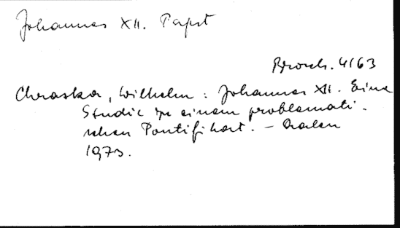 Johannes XII. Papst
Brosch. 4163
Chraska, Wilhelm: Johannes XII. Eine
Studie zu einem problemati-
schen Pontifikat. – Aalen
1973.